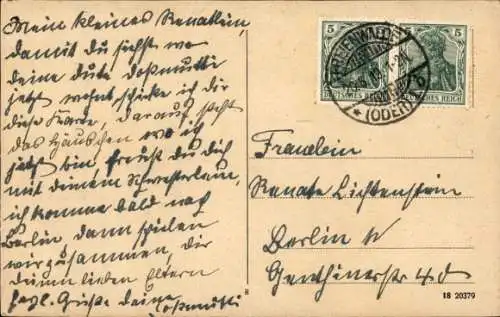 Mein kleines Renatlein,
damit du siehst wo
deine
jetzt wohnt schicke ich dir
diese Karte, darauf steht
das Häuschen wo ich
jetzt bin freust du dich
mit deinem Schwesterlein,
ich komme bald nach
Berlin, dann spielen
wir zusammen, dir
deinen lieben Eltern
hzl. Grüße deine
5
DEUTSCHES REICH
5
DEUTSCHES REICH
FREIENWALDE
* (ODER) b
Fräulein
Renate Lichtenstein
Berlin W
Genthinerstr 4.d
8
18 20379